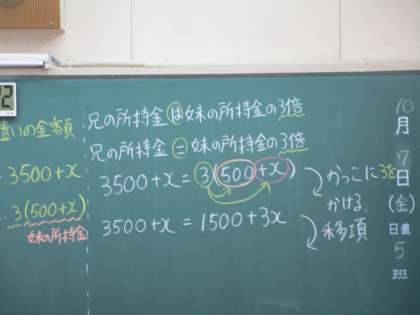 兄の所持金は妹の所持金の3倍
兄の所持金=妹の所持金の3倍
3500+x=3(500+x)
かっこに3を
かける.
3500+x=1500+3x
移項
いの金額
3500+x
3(500+x)
妹の所持金
10
月
7
日
(金)
日直
5
班